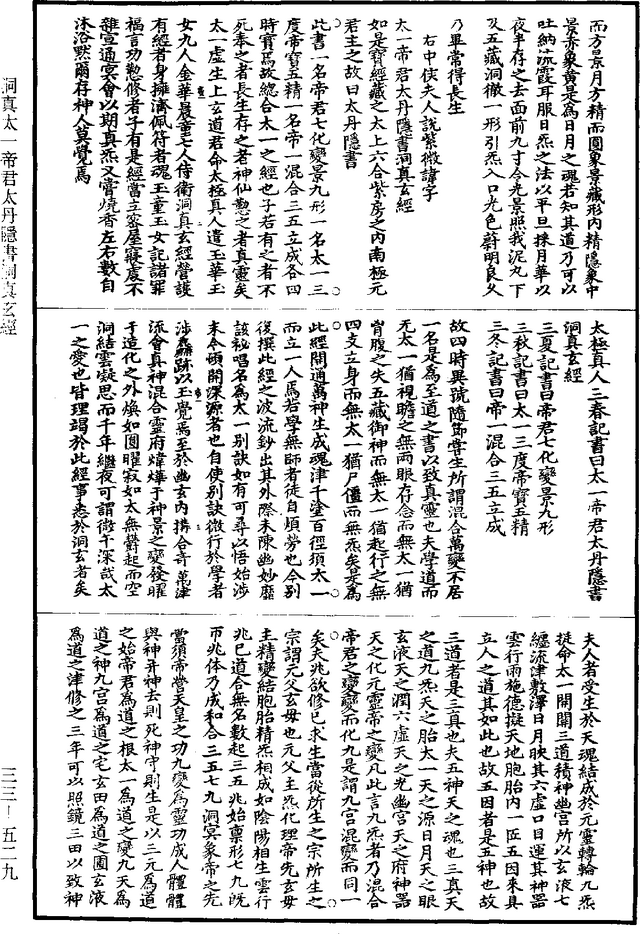 而方景月方精而圓象景藏形內精隱象中
景赤象黃是為日月之魂若知其道乃可以
吐納流霞耳服日炁之法以平旦採月華以
夜半存之去面前九寸令光景照我泥丸下
及五藏洞徹一形引炁入口光色蔚明良久
乃畢常得長生
右中俠夫人說紫微諱字
太一帝君太丹隱書洞真玄經
如是寶經藏之太上六合紫房之內南極元
君主之故曰太丹隱書
此書一名帝君七化變景九形一名太一三
度帝寶五精一名帝一混合三五立成各四
時寶焉故總合太一之經也子若有之者不
死奉之者長生存之者神仙懃之者真靈矣
太一虛生上玄道君命太極真人遣玉華玉
女九人金華晨童七人侍衛洞真玄經營護
有經者身擁濟佩符者魂玉童玉女記諸罪
福言功懃修者子有是經當立密屋寢處不
雜宣通冥會以期真炁又當燒香左右數自
沐浴默爾存神人莫覺焉
太極真人三春記書曰太一帝君太丹隱書
洞真玄經
三夏記書曰帝君七化變景九形
三秋記書曰太一三度帝寶五精
三冬記書曰帝一混合三五立成
故四時異號隨節當生所謂混合萬變不居
一名是為至道之書以致真靈也夫學道而
無太一猶視瞻之無兩眼存念而無太一猶
胷腹之失五藏御神而無太一猶起行之無
四支立身而無太一猶尸僵而無炁矣是為
此經開通萬神生成魂津千塗百徑須太一
而立一人焉若學無師者徒自煩勞也今別
復撰此經之波流鈔出其外際未陳幽妙靡
該祕唱名為太一別訣如有可尋以悟始涉
未令頓開深源者也自使別訣微行於學者
涉麤跡以玉覺焉至於幽玄內構合奇萬津
流會真神混合靈府煒燁于神景之變發曜
于造化之外煥如圓曜寂如太無欝起而空
洞結雲凝思而千年繼夜可謂微乎深哉太
一之愛也皆理竭於此經事悉於洞玄者矣
夫人者受生於天魂結成於元靈轉輪九炁
挺命太一開關三道積神幽宮所以玄液七
纏流津敷澤日月映其六虛口目運其神器
雲行雨施德擬天地胞胎內一匝五因來具
立人之道其如此也故五因者是五神也故
三道者是三真也夫五神天之魂也三真天
之道九炁天之胎太一天之源日月天之眼
玄液天之潤六虛天之光幽宮天之府神器
天之化元靈帝之變凡此言九炁者乃混合
帝君之變變而化九是謂九宮混變而同一
矣夫兆欲修己求生當從所生之宗所生之
宗謂元父玄母也元父主炁化理帝先玄母
主精變結胞胎精炁相成如陰陽相生雲行
兆已道合無名數起三五兆始稟形七九既
帀兆體乃成和合三五七九洞冥象帝之先
當須帝營天皇之功九變為靈功成人體體
與神并神去則死神守則生是以三元為道
之始帝君為道之根太一為道之變九天為
道之神九宮為道之宅玄田為道之圃玄液
為道之津修之三年可以照鏡三田以致神
洞真太一帝君太丹隱書洞真玄經
三三—五二九